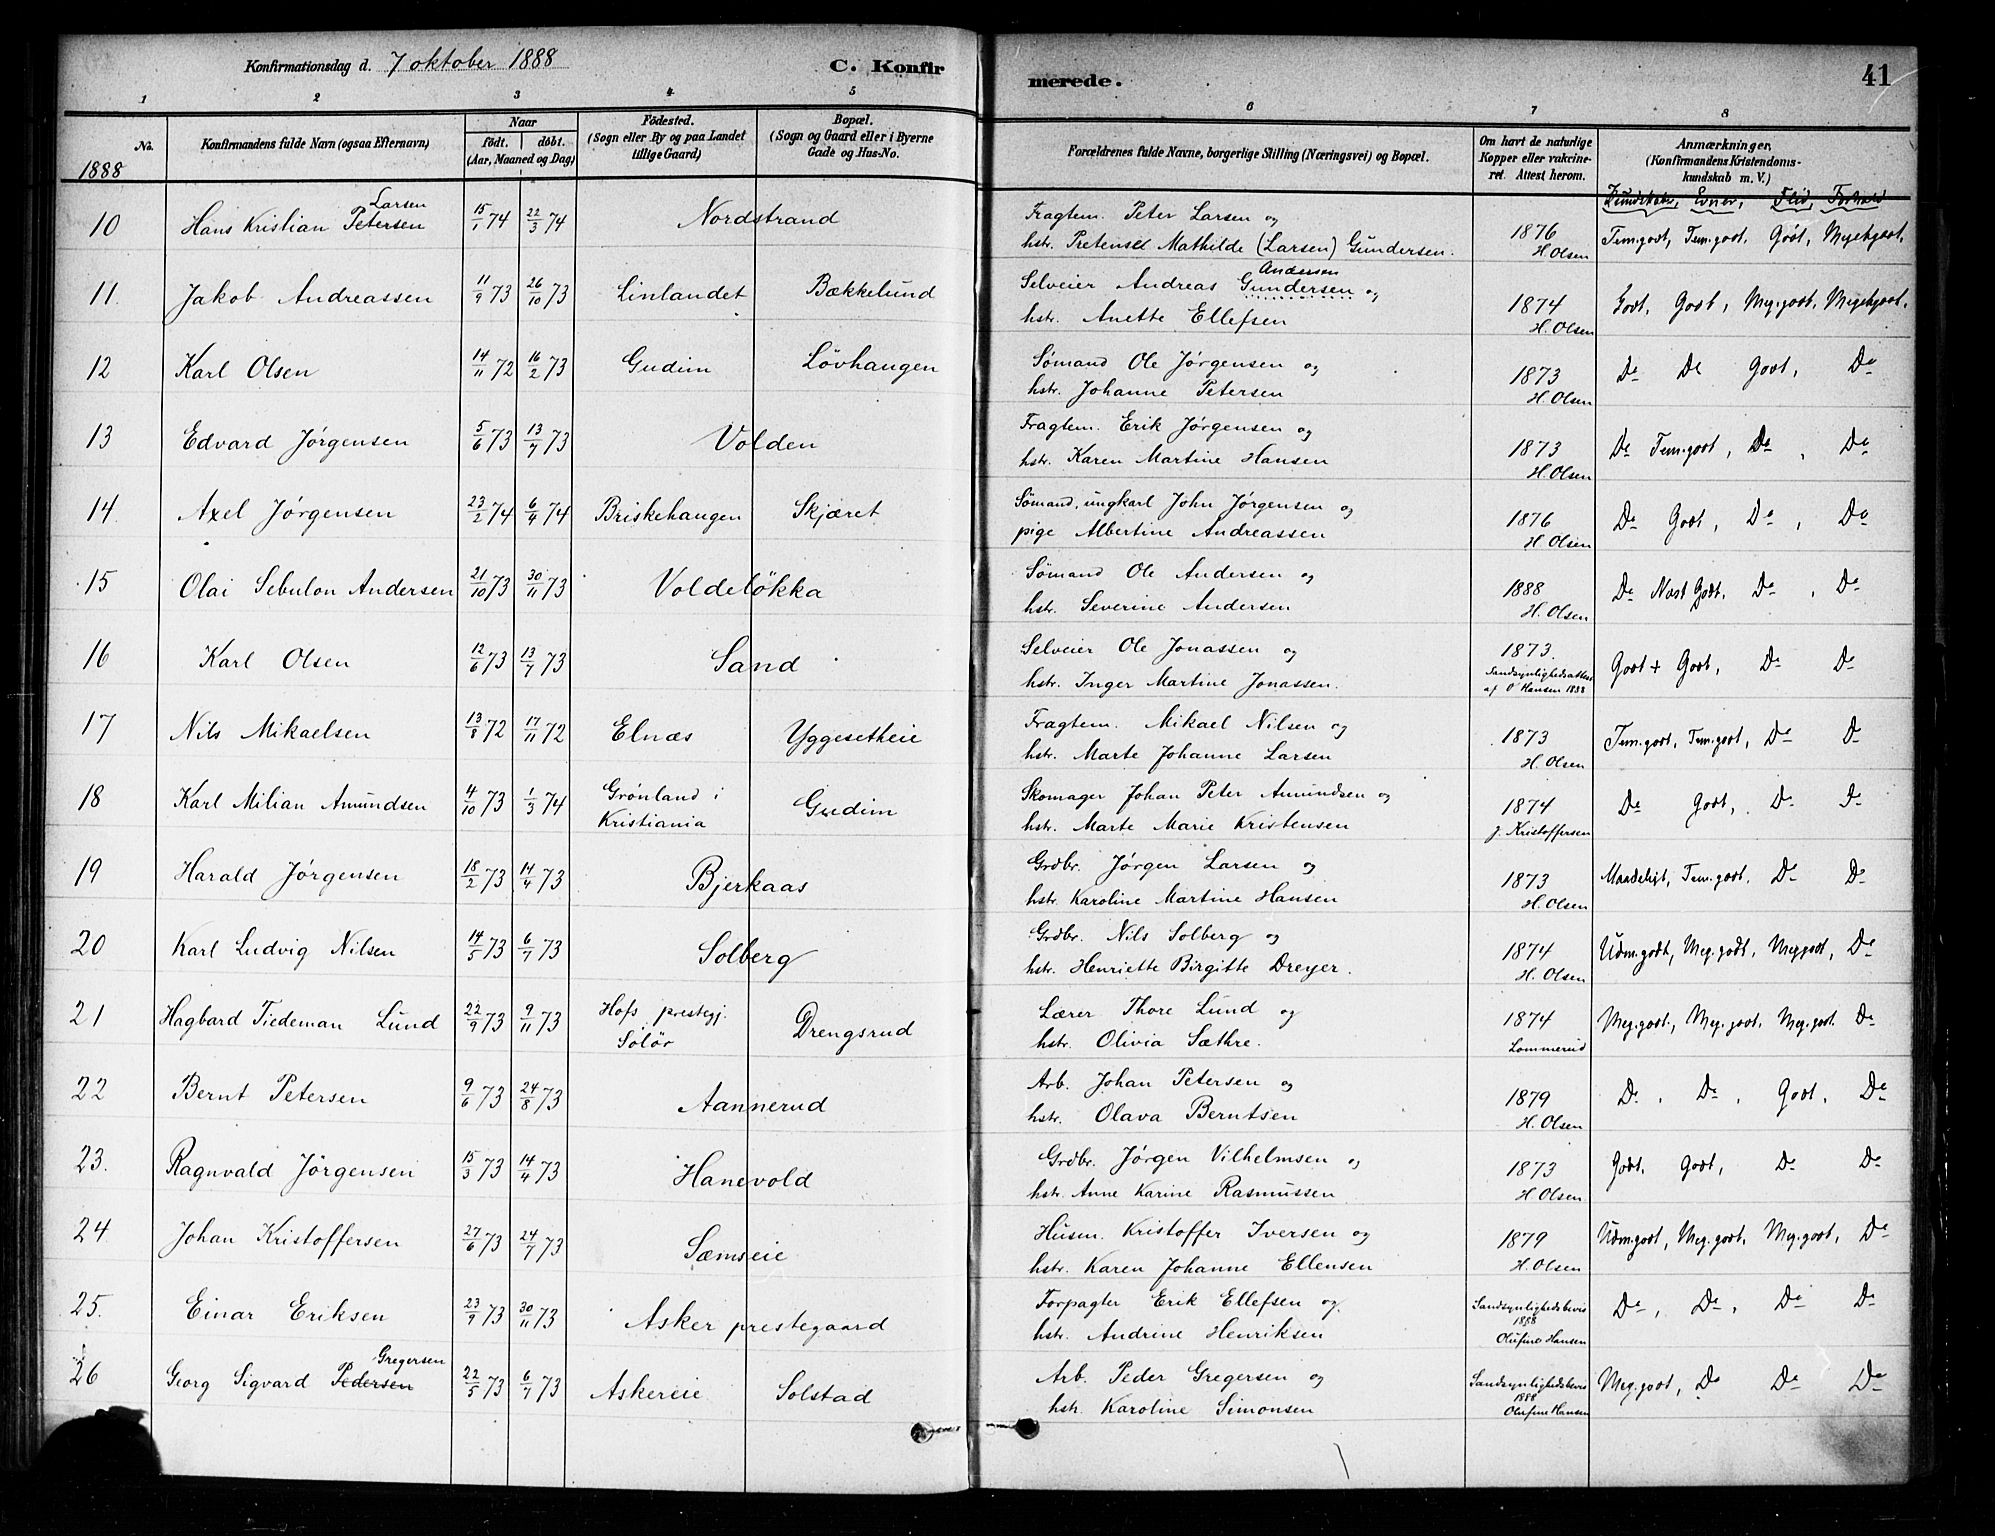 Konfirmationsdag d. 7 oktober 1888 C. Konfirmerede. 41
1 2 3 4 5 6 7 8
No. Konfirmandens fulde Navn (ogsaa Efternavn) Naar født. døbt. (Aar, Maaned og Dag) Födested. (Sogn eller By og paa Landet tillige Gaard) Bopæl. (Sogn og Gaard eller i Byerne Gade og Hus-No. Forældrenes fulde Navne, borgerlige Stilling (Næringsvei) og Bopæl. Om havt de naturlige Kopper eller vakcineret. Attest herom. Anmærkninger. (Konfirmandens Kristendomskundskab m. V.)
1888 Kundskaber, Evner, Flid, Forhold
10 Hans Kristian Petersen Larsen 15/1 74 22/3 74 Nordstrand Fragtem. Peter Larsen og
hstr. Mathilde (Larsen) Gundersen. 1876 H. Olsen Tem.godt, Tem.godt, Godt, Megetgodt.
11. Jakob Andreassen 11/9 73 26/10 73 Linlandet Bækkelund Selveier Andreas Gundersen Andersen og
hstr. Anette Ellefsen 1874 H. Olsen Godt, Godt, Meg.godt, Megetgodt.
12 Karl Olsen 14/11 72 16/2 73 Gudim Lövhaugen Sømand Ole Jørgensen og
hstr. Johanne Petersen 1873 H. Olsen Do Do Godt, Do
13 Edvard Jørgensen 5/6 73 13/7 73 Volden Fragtem. Erik Jørgensen og
hstr. Karen Martine Hansen 1873 H. Olsen Do Tem.godt, Do, Do
14 Axel Jørgensen 23/2 74 6/4 74 Briskehaugen Skjæret Sømand, ungkarl John Jørgensen og
pige Albertine Andreassen 1876 H. Olsen Do Godt, Do, Do
15 Olai Sebulon Andersen 21/10 73 30/11 73 Voldeløkka Sømand Ole Andersen og
hstr. Severine Andersen 1888 H. Olsen Do Næst Godt, Do, Do
16 Karl Olsen 12/6 73 13/7 73 Sand Selveier Ole Jonassen og
hstr. Inger Martine Jonassen. 1873. Sandsynlighedsattest af O Hansen 1888 Godt + Godt, Do Do
17 Nils Mikaelsen 13/8 72 17/11 72 Elnæs Yggesetheie Fragtem. Mikael Nilsen og
hstr. Marte Johanne Larsen 1873 H. Olsen Tem.godt, Tem.godt, Do Do
18 Karl Milian Amundsen 4/10 73 1/3 74 Grønland i Kristiania Gudim Skomager Johan Peter Amundsen og
hstr. Marte Marie Kristensen 1874 J. Kristoffersen Do Godt, Do Do
19 Harald Jørgensen 18/2 73 14/4 73 Bjerkaas Grdbr. Jørgen Larsen og
hstr. Karoline Martine Hansen 1873 H. Olsen Maadeligt, Tem.godt. Do Do
20 Karl Ludvig Nilsen 14/5 73 6/7 73 Solberg Grdbr. Nils Solberg og
hstr. Henriette Birgitte Dreyer. 1874 H. Olsen Udm.godt, Meg.godt, Meg.godt, Do
21 Hagbard Tiedeman Lund 22/9 73 9/11 73 Hofs prestegj. Solør Drengsrud Lærer Thore Lund og
hstr. Olivia Sæthre. 1874 Lommerud Meg.godt, Meg.godt, Meg.godt. Do
22 Bernt Petersen 9/6 73 24/8 73 Aannerud Arb. Johan Petersen og
hstr. Olava Berntsen 1879 H. Olsen Do, Do, Godt, Do
23. Ragnvald Jörgensen 15/3 73 14/4 73 Hanevold Grdbr. Jørgen Vilhelmsen og
hstr. Anne Karine Rasmussen 1873 H Olsen Godt, Godt, Do Do
24 Johan Kristoffersen 27/6 73 24/7 73 Sæmseie Husm. Kristoffer Iversen og
hstr. Karen Johanne Ellensen 1879 H. Olsen Udm.godt, Meg.godt, Meg.godt, Do
25. Einar Eriksen 23/9 73 30/11 73 Asker prestegaard Forpagter Erik Ellefsen og
hstr. Andrine Henriksen Sandsynlighedsbevis 1888 Olufine Hansen Do, Do, Do Do
26 Georg Sigvard Pedersen Gregersen 22/5 73 6/7 73 Askereie Solstad Arb. Peder Gregersen og
hstr. Karoline Simonsen Sandsynlighedsbevis 1888 Olufine Hansen Meg.godt, Do Do Do